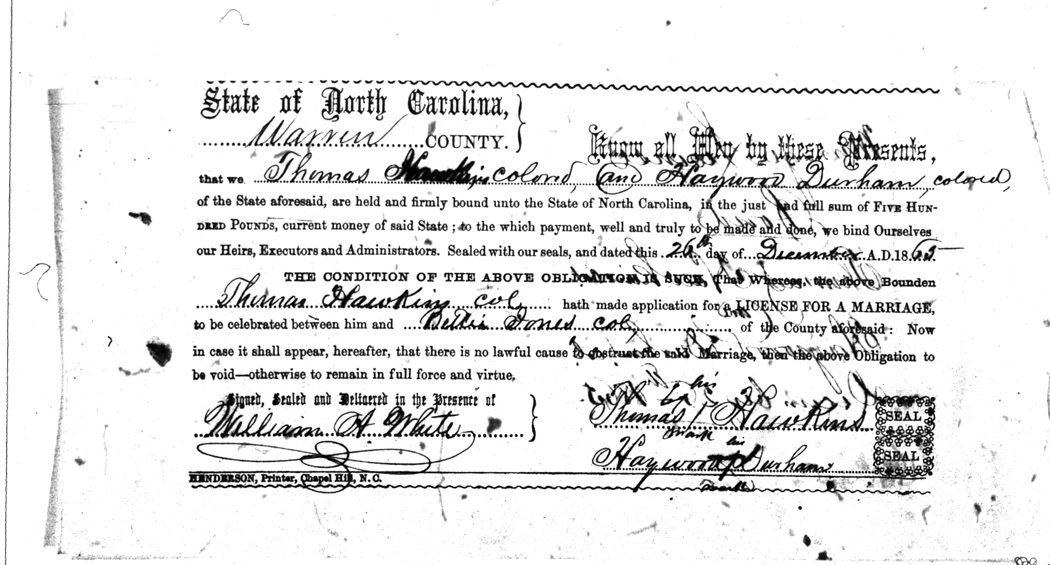 State of North Carolina,
Warren COUNTY.
Know all Men by these Presents,
that we Thomas Hawkins colored, and Haywood Durham colored,
of the State aforesaid, are held and firmly bound unto the State of North Carolina, in the just and full sum of FIVE HUN-
DRED POUNDS, current money of said State; to the which payment, well and truly to be made and done, we bind Ourselves
our Heirs, Executors and Administrators. Sealed with our seals, and dated this 26th day of December A.D. 1865
THE CONDITION OF THE ABOVE OBLIGATION IS SUCH, That Whereas, the above Bounden
Thomas Hawkins col. hath made application for a LICENSE FOR A MARRIAGE,
to be celebrated between him and Bettie Jones col. of the County aforesaid: Now
in case it shall appear, hereafter, that there is no lawful cause to obstruct the said Marriage, then the above Obligation to
be void—otherwise to remain in full force and virtue.
Signed, Sealed and Delivered in the Presence of
William A. White
his
Thomas Hawkins SEAL
mark
his
Haywood Durham SEAL
mark
HENDERSON, Printer, Chapel Hill, N.C.